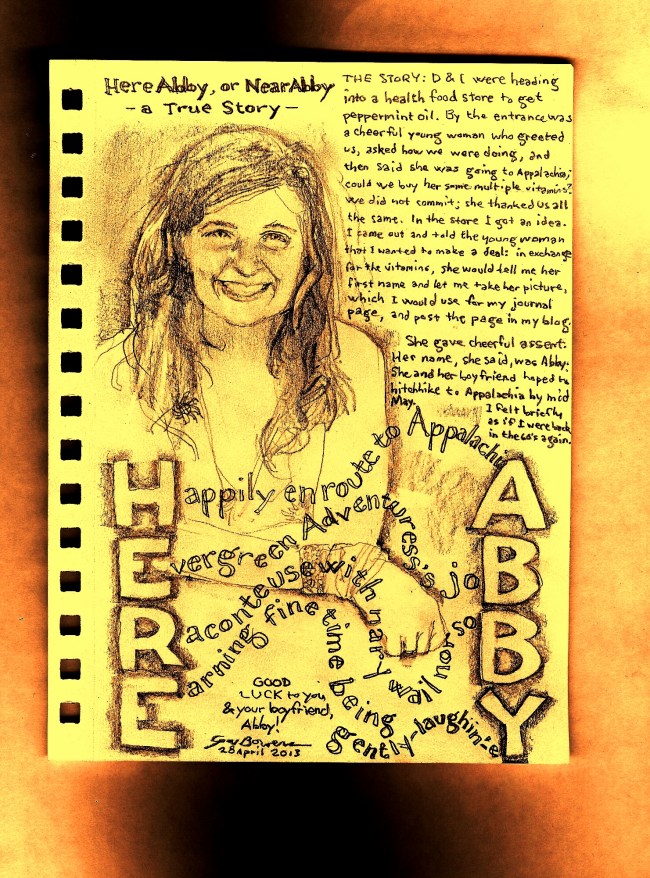 Here Abby, or Near Abby
- a True Story -
THE STORY: D & I were heading
into a health food store to get
peppermint oil. By the entrance was
a cheerful young woman who greeted
us, asked how we were doing, and
then said she was going to Appalachia;
could we buy her some multiple vitamins?
We did not commit; she thanked us all
the same. In the store I got an idea.
I came out and told the young woman
that I wanted to make a deal: in exchange
for the vitamins, she would tell me her
first name and let me take her picture,
which I would use for my journal
page, and post the page in my blog.
She gave cheerful assent.
Her name, she said, was Abby.
She and her boyfriend hoped to
hitchhike to Appalachia by mid
May.
I felt briefly
as if I were back
in the 60's again.
Happily enroute to AppalachiA
Evergreen Adventuress's joB
Raconteuse with nary wail you soB
Earning fine time being gently-laughin'-eY
GOOD
LUCK to you
& your boyfriend,
Abby!
Gary Bowers
28 April 2013